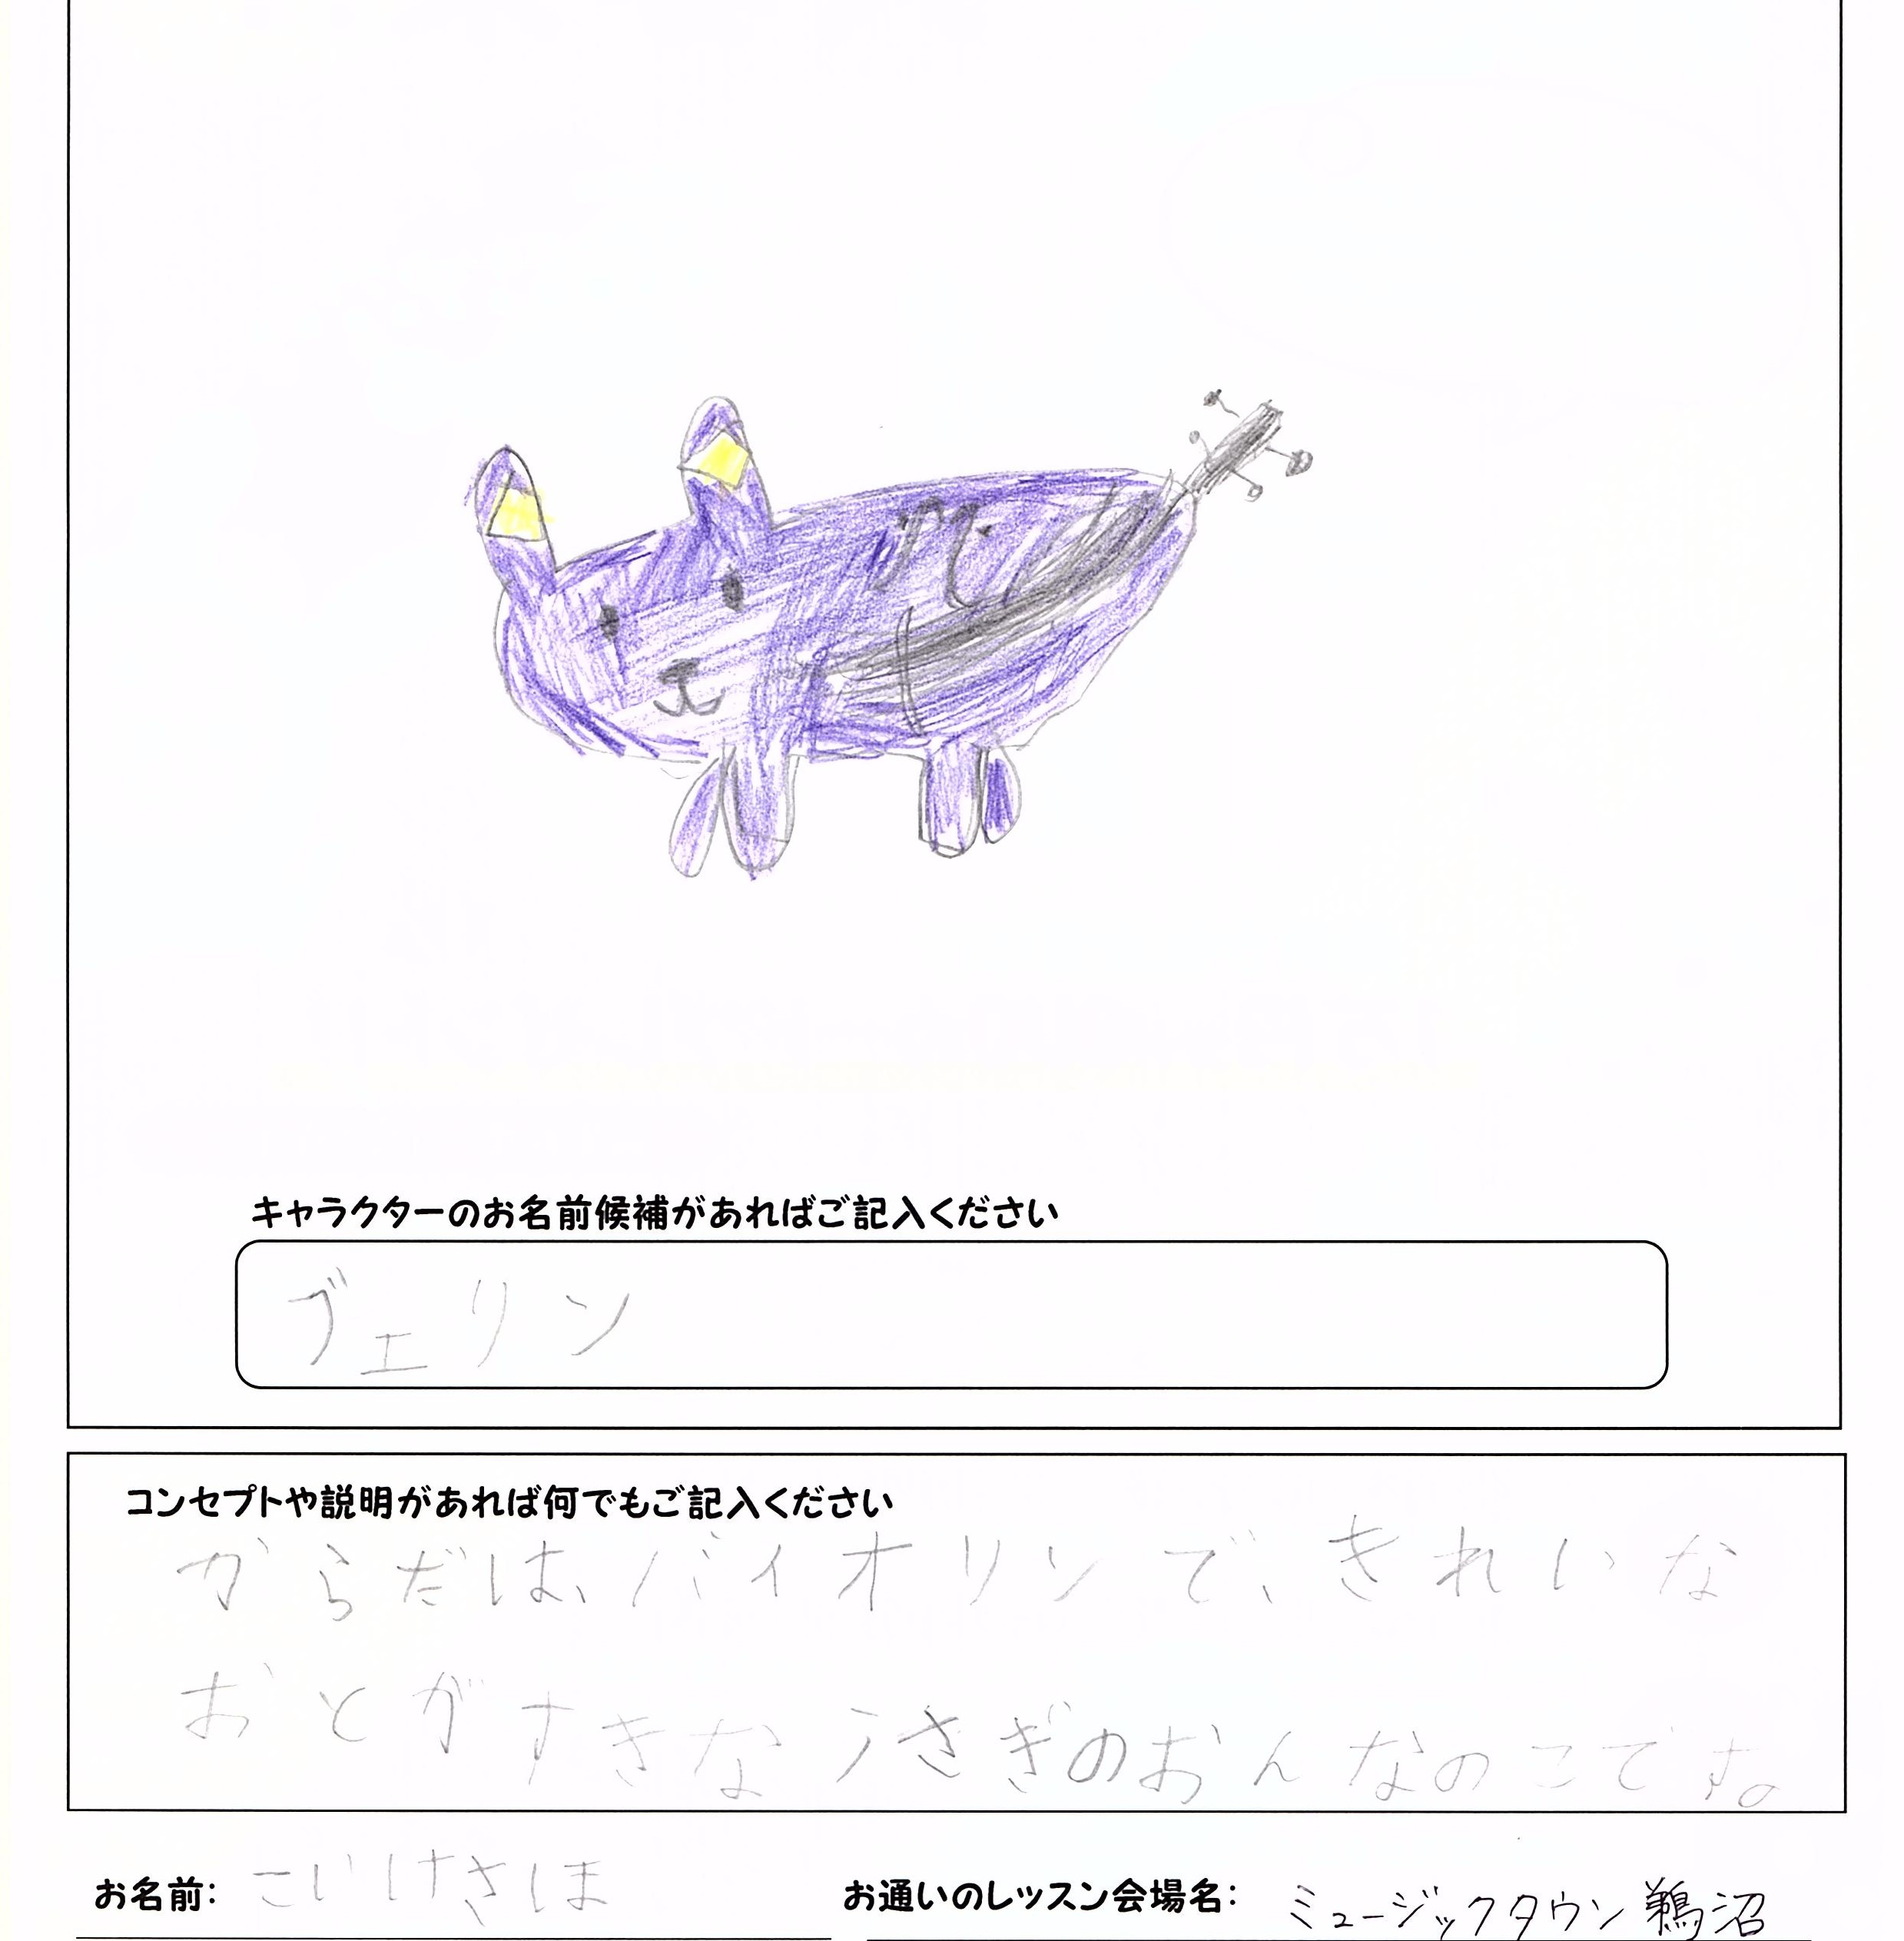 キャラクターのお名前候補があればご記入ください
ヴェリン
コンセプトや説明があれば何でもご記入ください
からだは、バイオリンで、きれいな
おとがすきなうさぎのおんなのこです。
お名前: こいけさほ
お通いのレッスン会場名: ミュージックタウン鵜沼